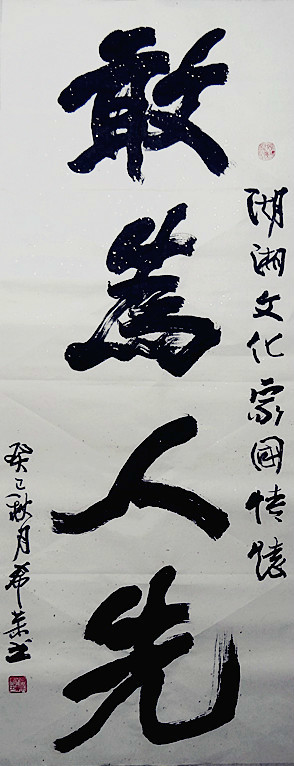 湖湘文化家國情懷
敢為人先
癸巳秋月希業书